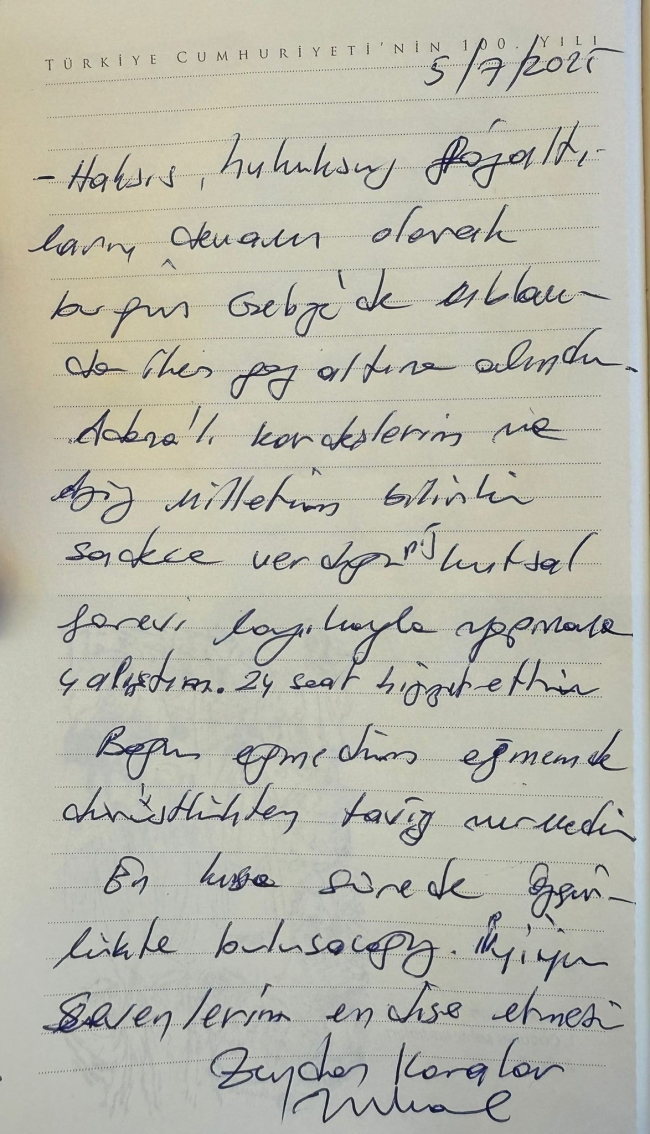 TÜRKİYE CUMHURİYETİ'NİN 100. YILI
5/7/2025
- Haksız, hukuksuz gözaltı-
ların devamı olarak
bugün Gebze'de
gözaltına alındım.
Adana'lı kardeşlerim ve
Aziz milletim bilsinler
sadece verdiğiniz kutsal
görevi layıkıyla yapmaya
çalıştım. 24 saat hizmet ettim
Boyun eğmedim eğmemek
dürüstlükten taviz vermedim
En kısa sürede özgür-
lükte buluşacağız. İyiyim
Sevenlerim endişe etmesin
Zeydan Karalar